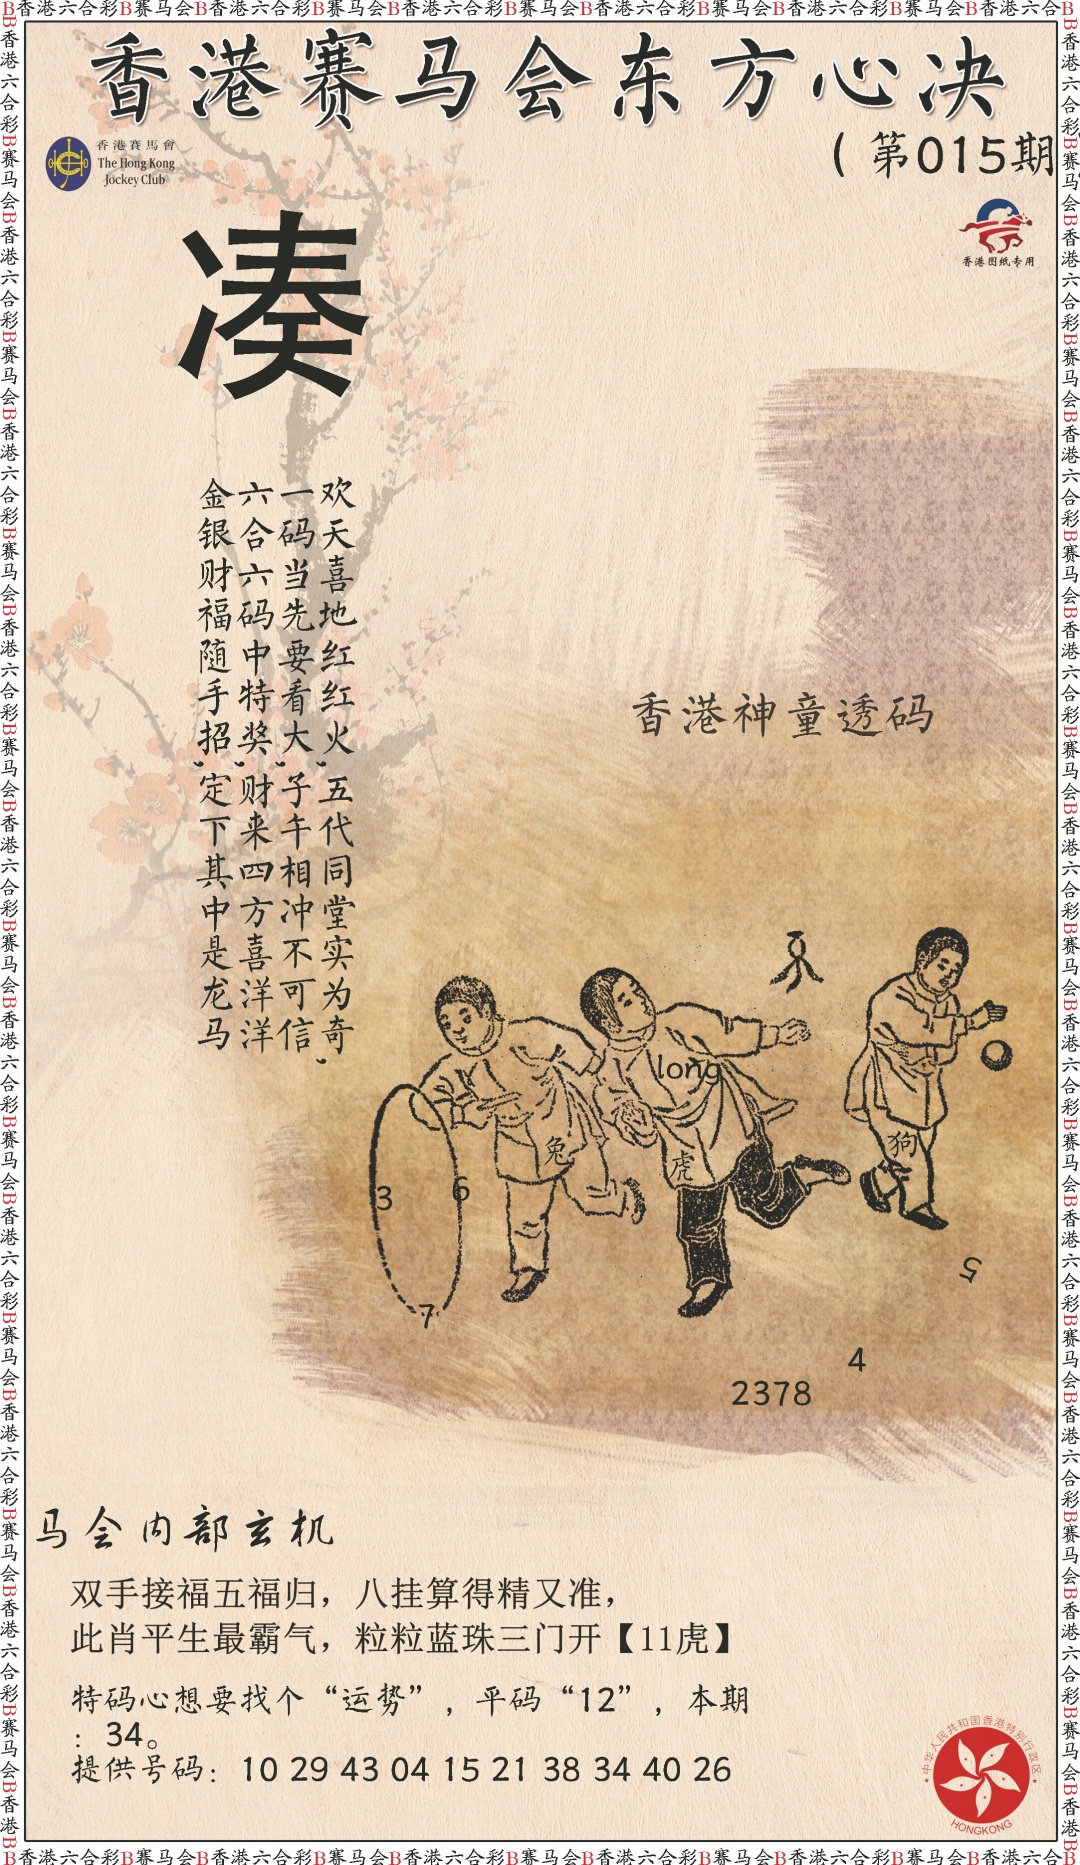 B香港六合彩B赛马会B香港六合彩B赛马会B香港六合彩B赛马会B香港六合彩B赛马会B香港六合彩B赛马会B香港六合B
香港赛马会东方心决
(第015期
香港賽馬會
The Hong Kong
Jockey Club
香港图纸专用
凑
欢天喜地红红火,五代同堂实为奇,
一码当先要看大,子午相冲不可信
六合六码中特奖,财来四方喜洋洋
金银财福随手招,定下其中是龙马
香港神童透码
long
兔
虎
狗
3
6
7
5
4
2378
马会内部玄机
双手接福五福归，八挂算得精又准，
此肖平生最霸气，粒粒蓝珠三门开【11虎】
特码心想要找个“运势”，平码“12”，本期
：34。
提供号码：10 29 43 04 15 21 38 34 40 26
中华人民共和国香港特别行政区
HONGKONG